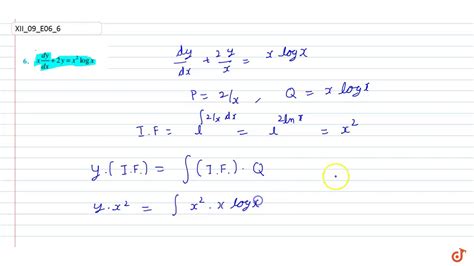 XII_09_E06_6
6. x dy/dx + 2y = x² log x
dy/dx + 2y/x = x log x
P = 2/x , Q = x log x
I.F = e^∫2/x dx = e^2lnx = x²
y.(I.F.) = ∫(I.F.).Q
y.x² = ∫ x². x log x